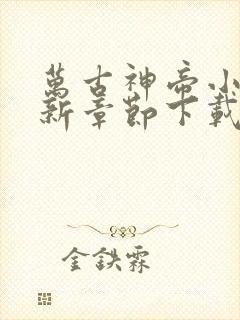 萬古神帝小
新章節下載
金鉄霖